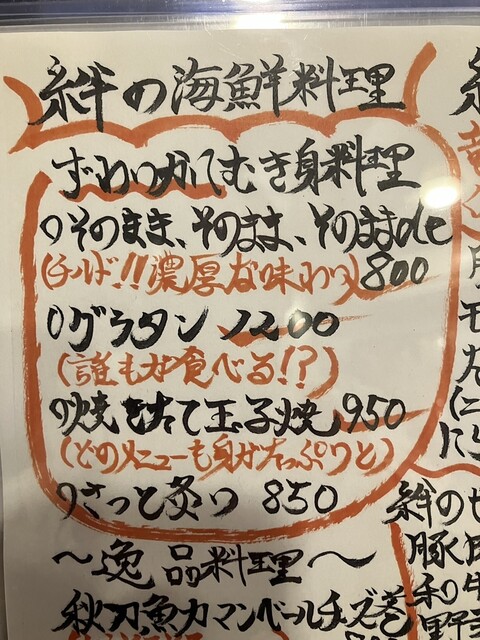 絆の海鮮料理
ずわいがにむき身料理
のそのまま、そのまま、そのままde
(チルド!!濃厚な味わい)800
のグラタン 1200
(誰もが食べる!?)
の焼きたて玉子焼 950
(どのメニューも身がたっぷりと)
のさっと炙り 850
〜逸品料理〜
秋刀魚カマンベールチーズ巻
絆の
豚